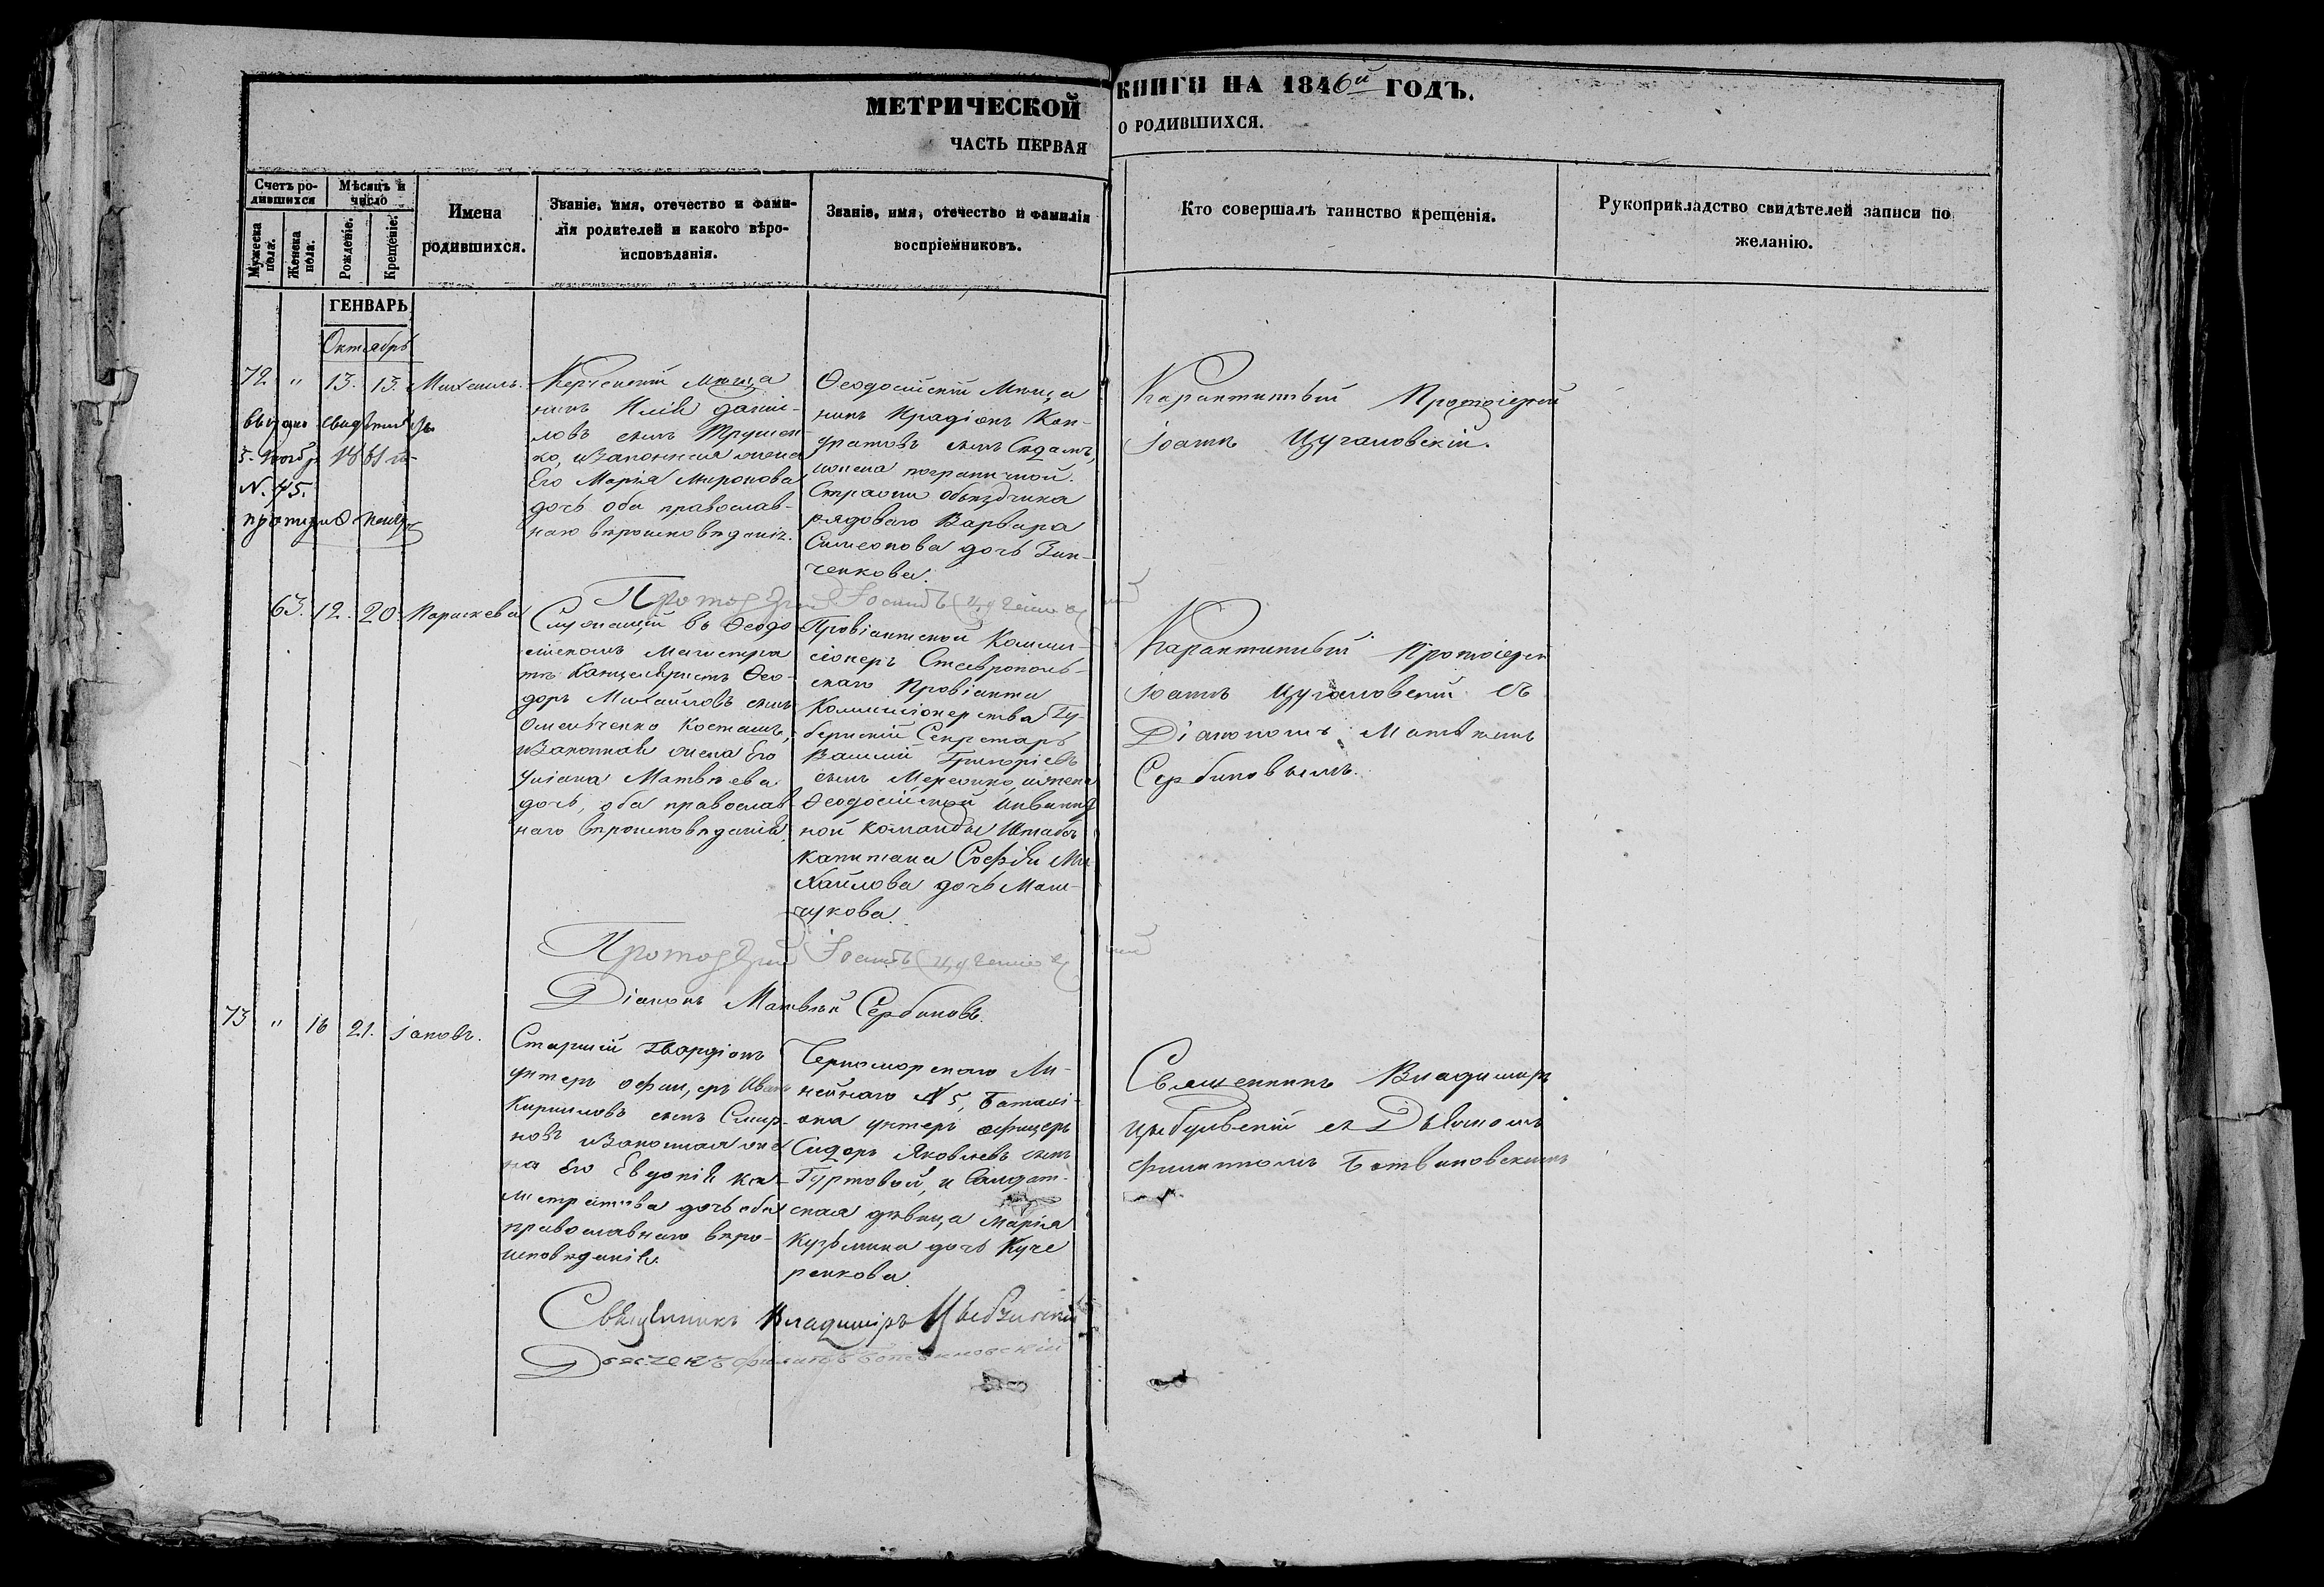 МЕТРИЧЕСКОЙ
КНИГИ НА 1846й ГОДЪ.
ЧАСТЬ ПЕРВАЯ
О РОДИВШИХСЯ.
Счетъ ро-
дившихся
Мужеска
пола.
Женска
пола.
Мѣсяцъ и
число
Рожденіе.
Крещеніе.
Имена
родившихся.
Званіе, имя, отечество и фами-
лія родителей и какого вѣро-
исповѣданія.
Званіе, имя, отечество и фамилія
воспріемниковъ.
Кто совершалъ таинство крещенія.
Рукоприкладство свидѣтелей записи по
желанію.
ГЕНВАРЬ
Октябрь
72 " 13. 13. Михаилъ.
Выдано свидѣтельс
5. Нояб
N. 45.
Керченскій Мѣща
нинъ Илія Даніи-
ловъ сынъ Трушен
ко, и законная жена
Его Марія Миронова
дочь оба православ-
наго вѣроисповѣданія.
Ѳеодосійскій Мѣща
нинъ Иродіонъ Кон-
дратовъ сынъ
и жена пограничной
Стражи объѣздчика
рядоваго Варвара
Симеонова дочь Зин-
ченкова.
Карантинный Протоіерей
Іоаннъ Цугановскій.
63. 12. 20. Параскева
Служащій въ Ѳеодо
сійскомъ Магистра
тѣ Канцеляристъ Ѳео-
доръ Михайловъ сынъ
Омельченко Косташъ,
и законная жена Его
Уліана Матвѣева
дочь, оба православ
наго вѣроисповѣданія.
Провіантской Комми-
сіонеръ Ставрополь-
скаго Провіантска
Коммисіонерства Гу-
бернскій Секретарь
Василій Григоріевъ
сынъ и жена
Ѳеодосійской Инвалид
ной команды Штабсъ
капитана Софія Ми-
хайлова дочь Маш-
чукова.
Карантинный Протоіерей
Іоаннъ Цугановскій съ
Діакономъ Матвѣемъ
Сербиновымъ.
Протоіерей Іоаннъ Цугановскій
Діаконъ Матвѣй Сербиновъ.
73 " 16 21. Іаковъ.
Старшій Гвардіонъ
унтеръ офицеръ Иванъ
Кирилловъ сынъ Смир-
новъ и законная же
на Его Евдокія Кал-
листратова дочь оба
православнаго вѣро-
исповѣданія.
Черноморскаго Ли-
нейнаго № 5, Баталі-
она унтеръ офицеръ
Сидоръ Яковлевъ сынъ
Гуртовой, и Солдат-
ская дѣвица Марія
Кузьмина дочь Куче
ренкова.
Священникъ Владимиръ
Цыбульскій съ Дьячкомъ
Филиппомъ Ботвиновскимъ
Священникъ Владимиръ Цыбульскій
Дьячекъ Филиппъ Ботвиновскій